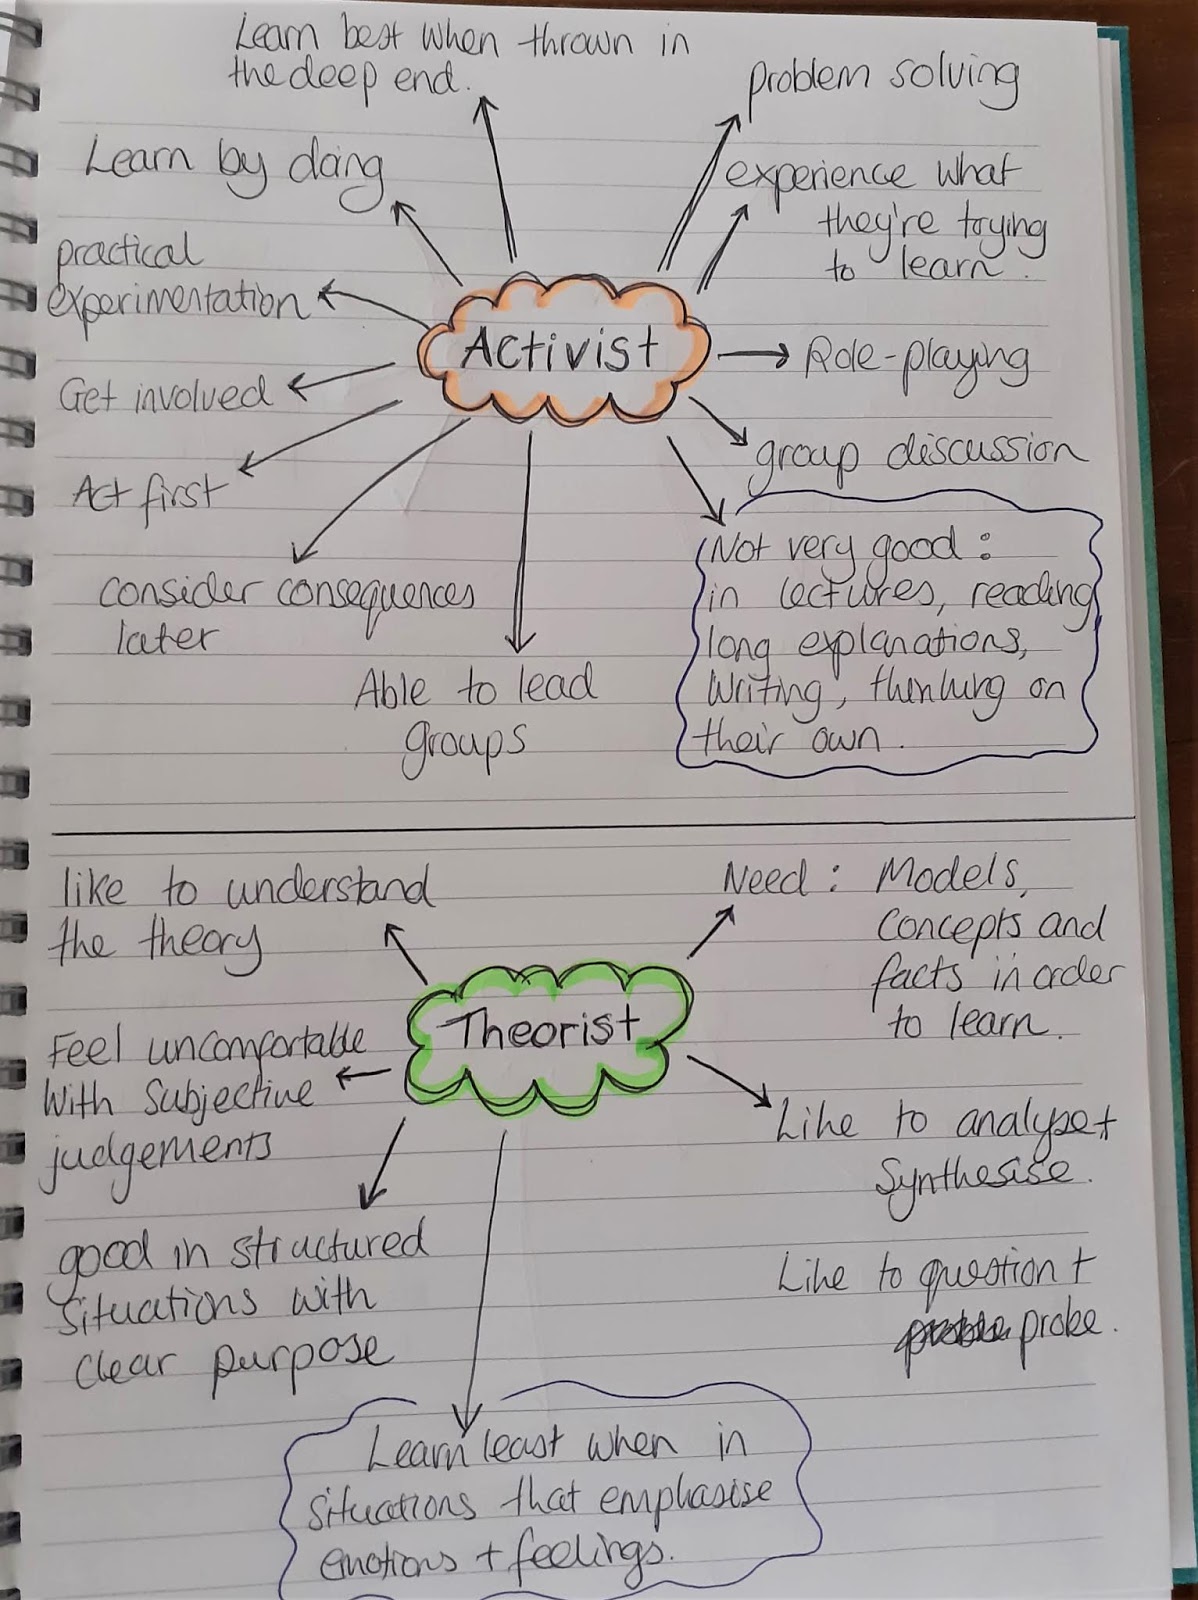 Learn best when thrown in
the deep end.
problem solving
Learn by doing
experience what
they're trying
to learn.
practical
experimentation
Activist
Role-playing
Get involved
group discussion
Act first
Not very good:
in lectures, reading
long explanations,
Writing, thinking on
their own.
consider consequences
later
Able to lead
groups
like to understand
the theory
Need: Models,
concepts and
facts in order
to learn.
Theorist
Feel uncomfortable
With Subjective
judgements
Like to analyse +
Synthesise.
good in structured
situations with
clear purpose
Like to question +
probe.
Learn least when in
situations that emphasise
emotions + feelings.